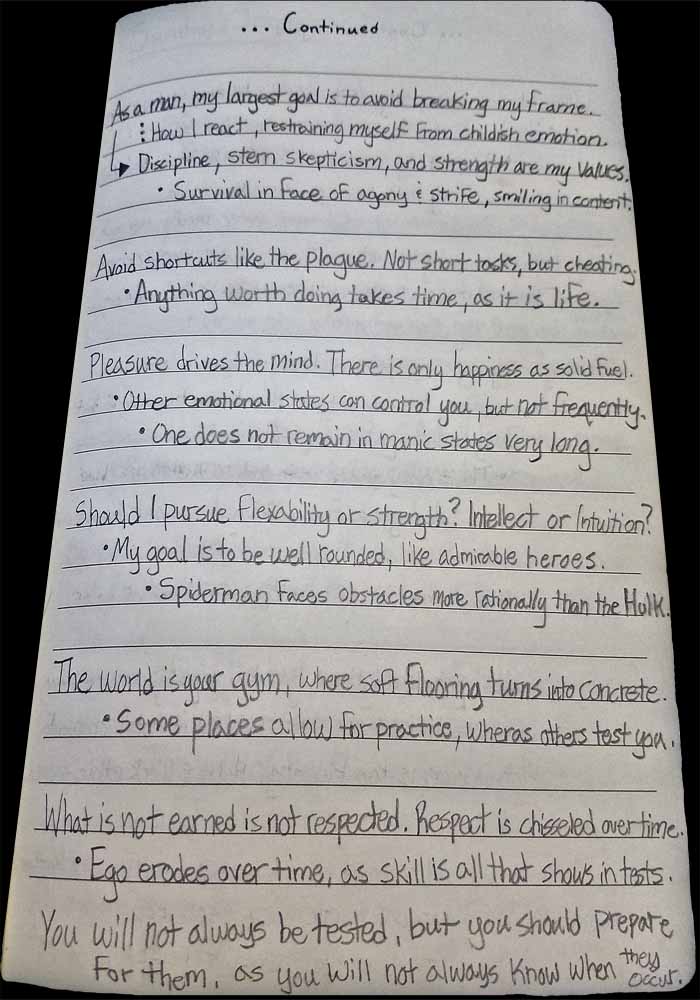 ... Continued
As a man, my largest goal is to avoid breaking my frame.
: How I react, restraining myself from childish emotion.
Discipline, stern skepticism, and strength are my values.
• Survival in face of agony & strife, smiling in content.
Avoid shortcuts like the plague. Not short tasks, but cheating.
• Anything worth doing takes time, as it is life.
Pleasure drives the mind. There is only happiness as solid fuel.
• Other emotional states can control you, but not frequently.
• One does not remain in manic states very long.
Should I pursue flexability or strength? Intellect or Intuition?
• My goal is to be well rounded, like admirable heroes.
• Spiderman faces obstacles more rationally than the Hulk.
The world is your gym, where soft flooring turns into concrete.
• Some places allow for practice, wheras others test you.
What is not earned is not respected. Respect is chisseled over time.
• Ego erodes over time, as skill is all that shows in tests.
You will not always be tested, but you should prepare
for them, as you will not always know when they occur.